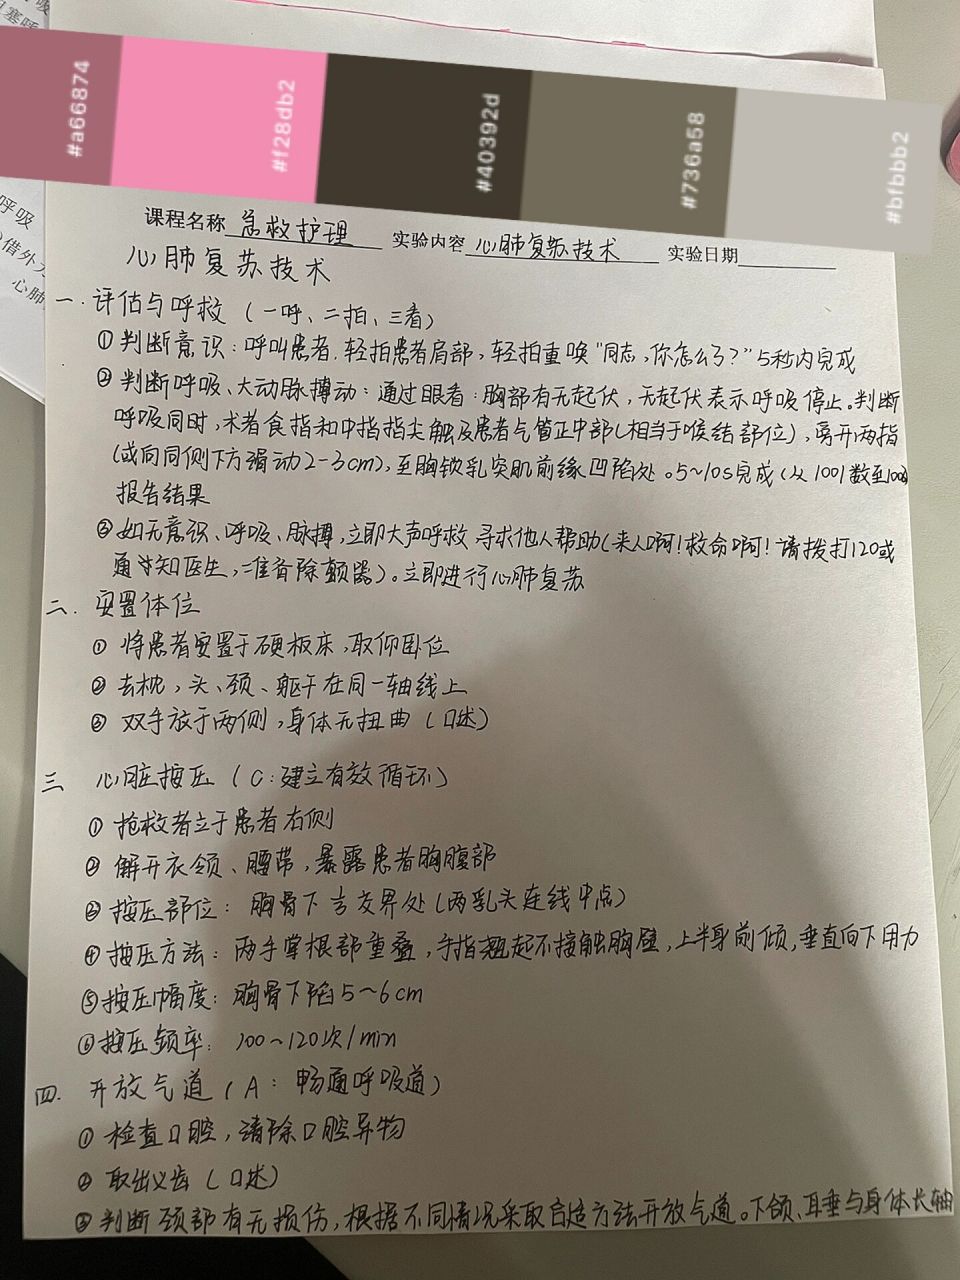 #a66874
#f28db2
#40392d
#736a58
#bfbbb2
呼吸
借外
心肺
课程名称 急救护理 实验内容 心肺复苏技术 实验日期
心肺复苏技术
一.评估与呼救（一呼、二拍、三看）
①判断意识：呼叫患者.轻拍患者肩部，轻拍重唤“同志，你怎么了？”5秒内完成
②判断呼吸、大动脉搏动：通过眼看：胸部有无起伏，无起伏表示呼吸停止。判断
呼吸同时，术者食指和中指指尖触及患者气管正中部（相当于喉结部位），离开两指
（或向同侧下方滑动2-3cm），至胸锁乳突肌前缘凹陷处。5~10s完成（从1001数至100
报告结果
③如无意识、呼吸、脉搏，立即大声呼救 寻求他人帮助（来人啊！救命啊！请拨打120或
通知医生，准备除颤器）。立即进行心肺复苏
二.安置体位
①将患者安置于硬板床，取仰卧位
②去枕，头、颈、躯干在同一轴线上
③双手放于两侧，身体无扭曲（口述）
三 心脏按压（C：建立有效循环）
①抢救者立于患者右侧
②解开衣领、腰带，暴露患者胸腹部
③按压部位：胸骨下 交界处（两乳头连线中点）
④按压方法：两手掌根部重叠，手指翘起不接触胸壁，上半身前倾，垂直向下用力
⑤按压幅度：胸骨下陷5~6cm
⑥按压频率：100~120次/min
四.开放气道（A：畅通呼吸道）
①检查口腔，清除口腔异物
②取出义齿（口述）
③判断颈部有无损伤，根据不同情况采取合适方法开放气道。下颌、耳垂与身体长轴